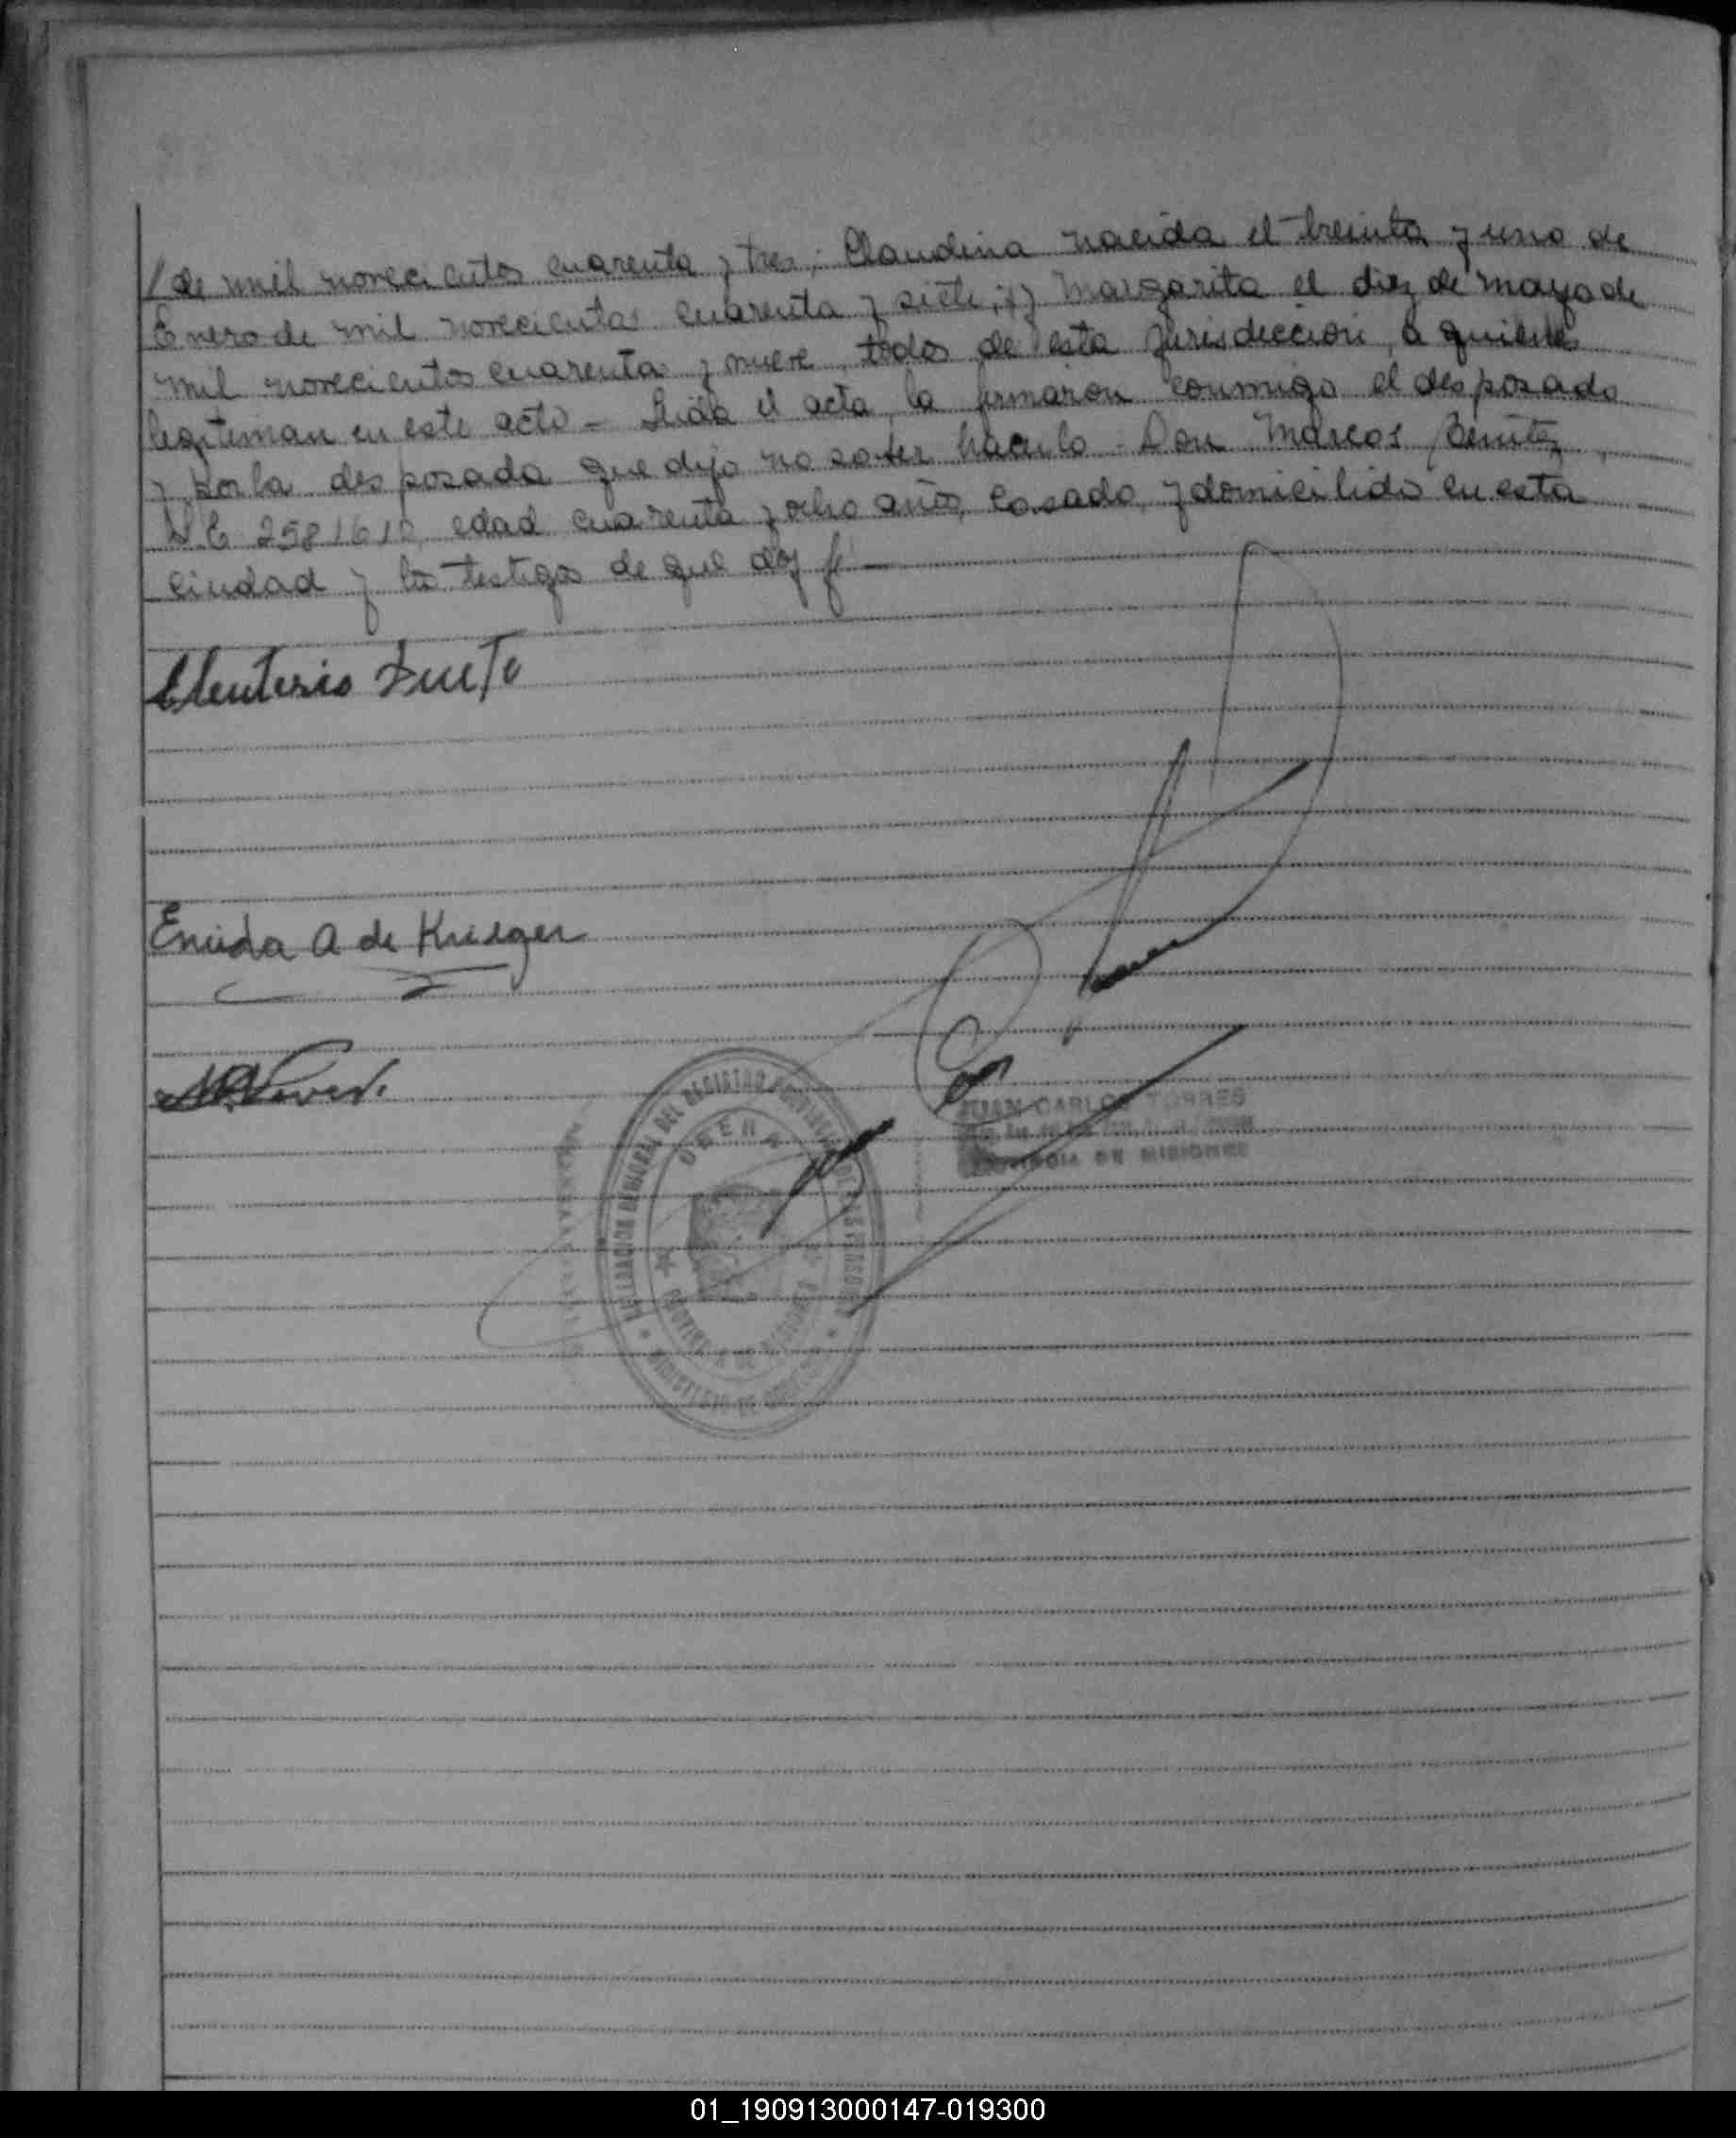 /de mil novecientos cuarenta y tres; Claudina nacida el treinta y uno de
Enero de mil novecientos cuarenta y siete; y Margarita el diez de mayo de
mil novecientos cuarenta y nueve, todos de esta jurisdicción, a quienes
legitiman en este acto - Leida el acta, la firmaron conmigo el desposado
y por la desposada que dijo no saber hacerlo - Don Marcos Benitez,
edad cuarenta y ocho años, casado, y domicilido en esta
ciudad y los testigos de que doy fe —
Eleuterio
Eneida A de Krieger
DELEGACION GENERAL DEL REGISTRO PROVINCIAL DE LAS PERSONAS
OBERA
MINISTERIO DE GOBIERNO
JUAN CARLOS TORRES
PROVINCIA DE MISIONES
01_190913000147-019300